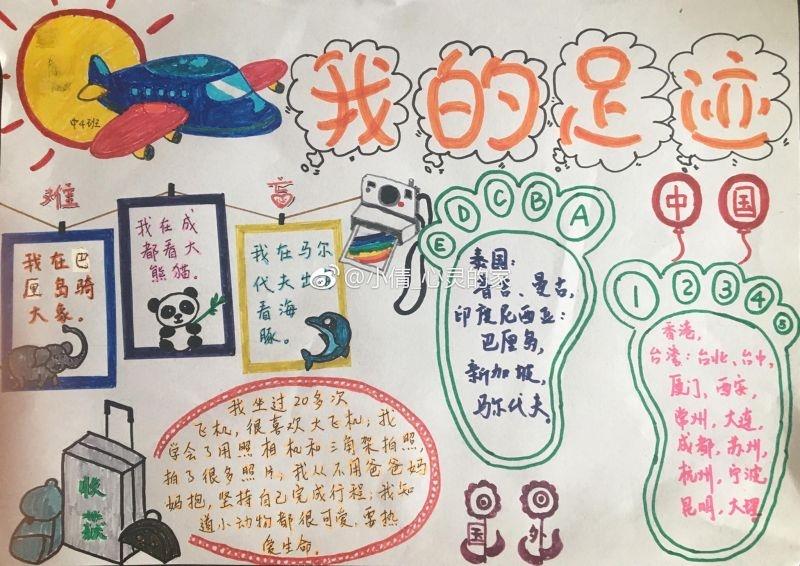 我的足迹
中4班
难
忘
我在巴
厘岛骑
大象。
我在成
都看大
熊猫。
我在马尔
代夫出海
看海
豚。
E D C B A
泰国：
普吉、曼谷，
印度尼西亚：
巴厘岛，
新加坡，
马尔代夫。
中国
1 2 3 4 5
香港，
台湾：台北、台中，
厦门，西安，
常州，大连，
成都，苏州，
杭州，宁波，
昆明，大理
@小倩 心灵的家
收
获
我坐过20多次
飞机，很喜欢大飞机；我
学会了用照相机和三角架拍照，
拍了很多照片；我从不用爸爸妈
妈抱，坚持自己完成行程；我知
道小动物都很可爱，要热
爱生命。
国外